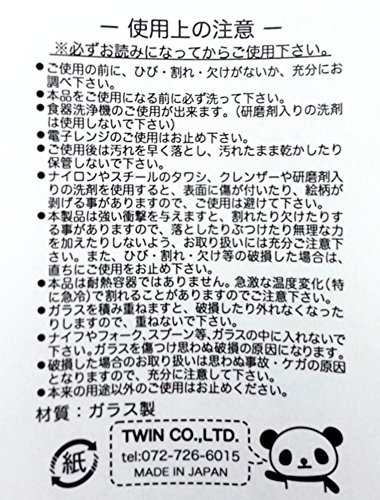 ― 使用上の注意 ―
※必ずお読みになってからご使用下さい。
●ご使用の前に、ひび・割れ・欠けがないか、充分にお
調べ下さい。
●本品をご使用になる前に必ず洗って下さい。
●食器洗浄機のご使用が出来ます。(研磨剤入りの洗剤
は使用しないで下さい)
●電子レンジのご使用はお止め下さい。
●ご使用後は汚れを早く落とし、汚れたまま乾かしたり
保管しないで下さい。
●ナイロンやスチールのタワシ、クレンザーや研磨剤入
りの洗剤を使用すると、表面に傷が付いたり、絵柄が
剥げる事がありますので、ご使用は避けて下さい。
●本製品は強い衝撃を与えますと、割れたり欠けたりす
る事がありますので、落としたりぶつけたり無理な力
を加えたりしないよう、お取り扱いには充分ご注意下
さい。また、ひび・割れ・欠け等の破損した場合は、
直ちにご使用をお止め下さい。
●本品は耐熱容器ではありません。急激な温度変化(特
に急冷)で割れることがありますのでご注意下さい。
●ガラスを積み重ねますと、破損したり外れなくなった
りしますので、重ねないで下さい。
●ナイフやフォーク、スプーン等、ガラスの中に入れないで
下さい。ガラスを傷つけ思わぬ破損の原因になります。
●破損した場合のお取り扱いは思わぬ事故・ケガの原因
となりますので、充分に注意して下さい。
●本来の用途以外のご使用はお止めください。
材質：ガラス製
紙
TWIN CO.,LTD.
tel:072-726-6015
MADE IN JAPAN